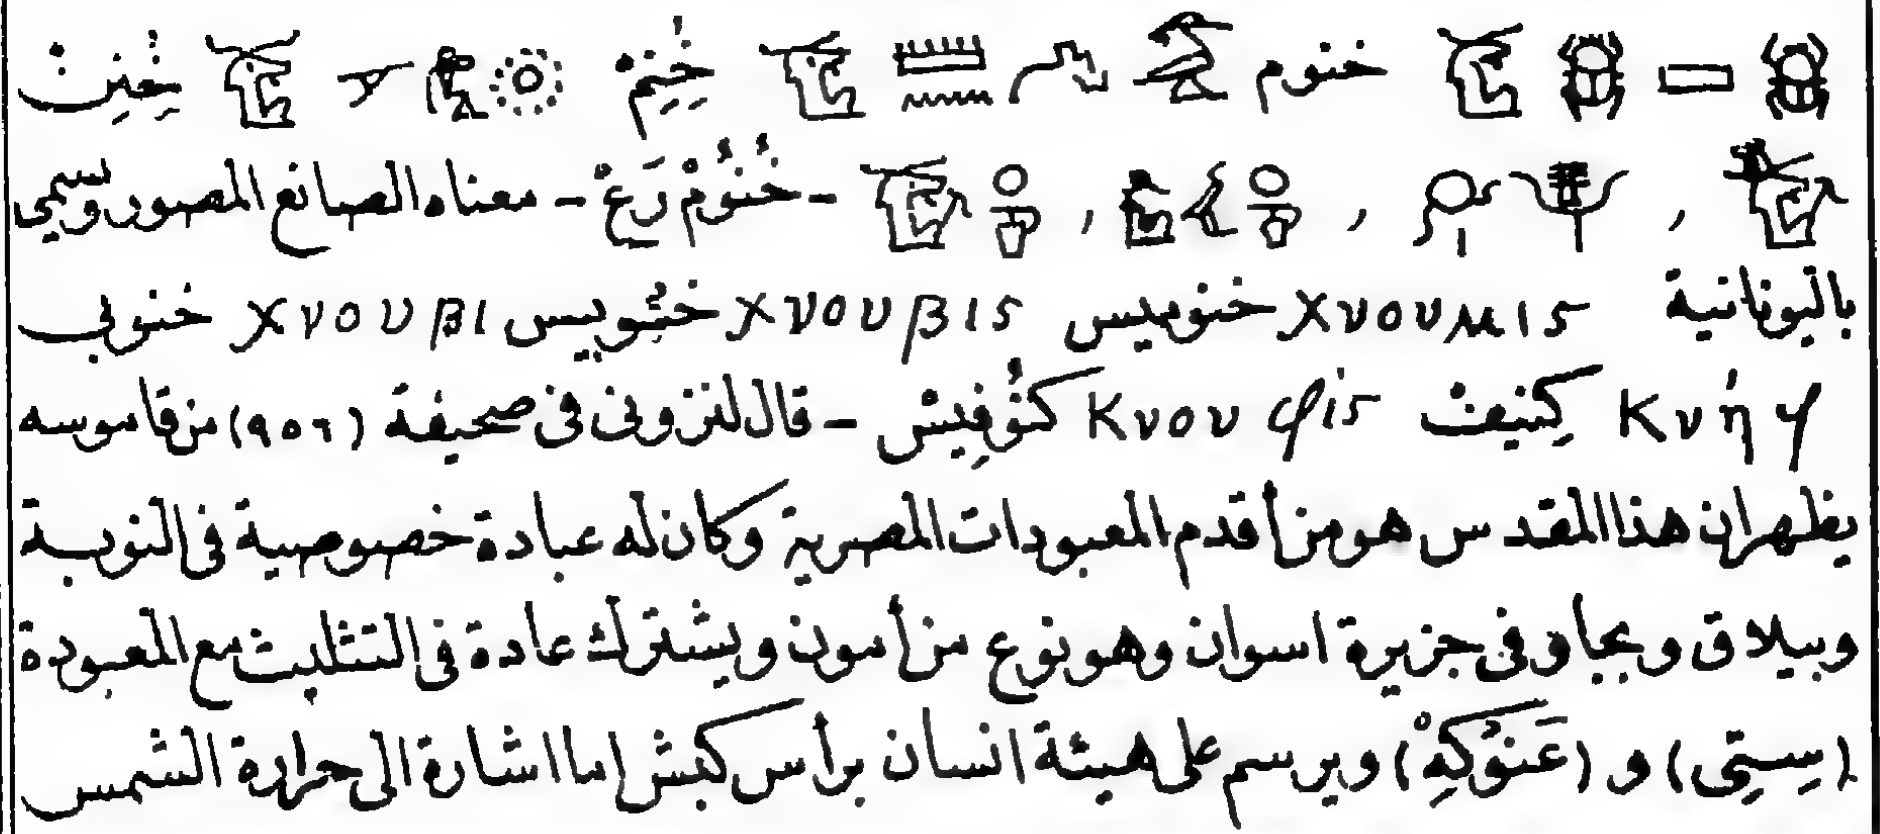 خنوم خِنِمُ خِنِنتْ
ـ خُنُومْ رَعْ ـ معناه الصانع المصور وسمى
باليونانية Χνουμις خنوميس Χνουβις خنوبيس Χνουβι خنوبى
Κνήφ كِنيفْ Κνουφίς كنُوفِيسْ ـ قال لنزونى فى صحيفة (٩٥٦) من قاموسه
يظهر ان هذا المقدس هو من أقدم المعبودات المصرية وكان له عبادة خصوصية فى النوبة
وبيلاق وبجاو فى جزيرة اسوان وهو نوع من أمون ويشترك عادة فى التثليث مع المعبودة
(سِتِى) و (عَنُوكِهْ) ويرسم على هيئة انسان برأس كبش اما اشارة الى حرارة الشمس